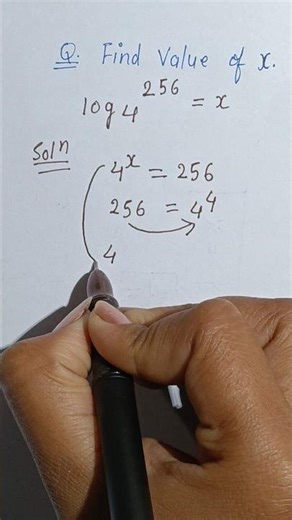 Q. Find Value of x.
log₄²⁵⁶ = x
Solⁿ
4ˣ = 256
256 = 4⁴
4